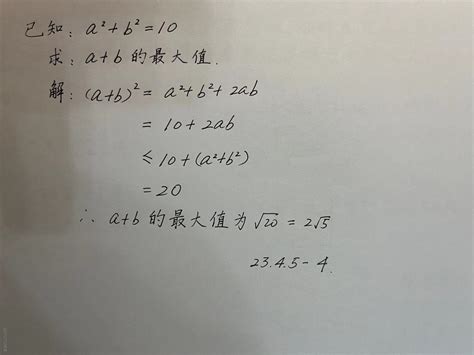 已知: a²+b²=10
求: a+b 的最大值.
解: (a+b)² = a²+b²+2ab
= 10+2ab
≤ 10+(a²+b²)
= 20
∴ a+b 的最大值为 √20 = 2√5
23.4.5-4.